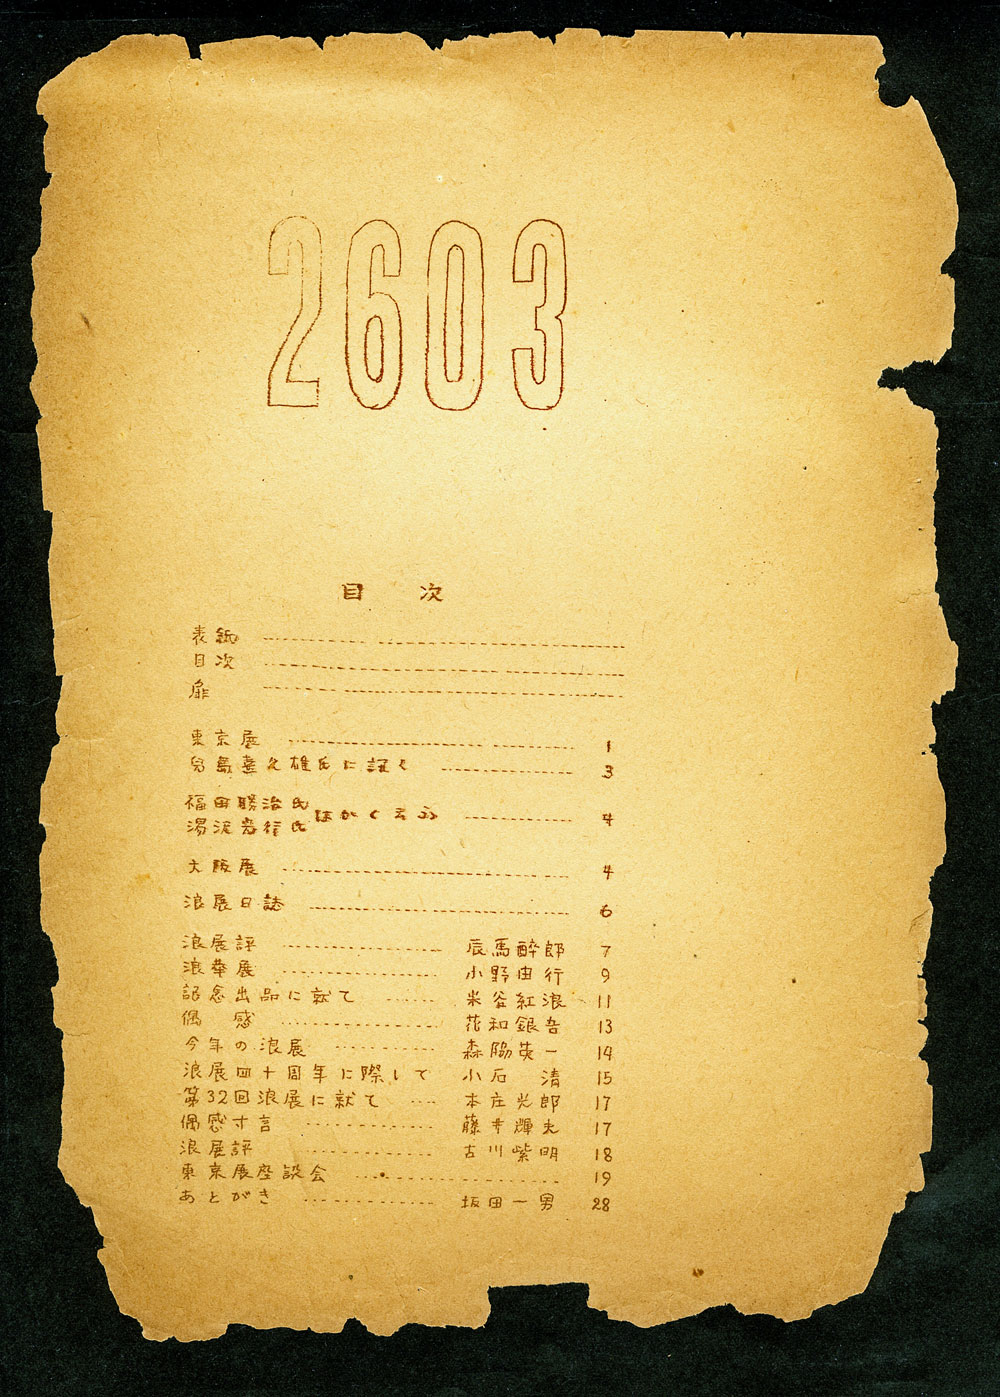 2603
目次
表紙
目次
扉
東京展 1
児島喜久雄氏に訊く 3
福田勝治氏
湯沢 行氏
はがくろふ 4
大阪展 4
浪展日誌 6
浪展評 辰馬酔郎 7
浪華展 小野由行 9
記念出品に就て 米谷紅浪 11
偶感 花和銀吾 13
今年の浪展 森脇英一 14
浪展四十周年に際して 小石清 15
第32回浪展に就て 本庄光郎 17
偶感寸言 藤井輝夫 17
浪展評 古川紫明 18
東京展座談会 19
あとがき 坂田一男 28